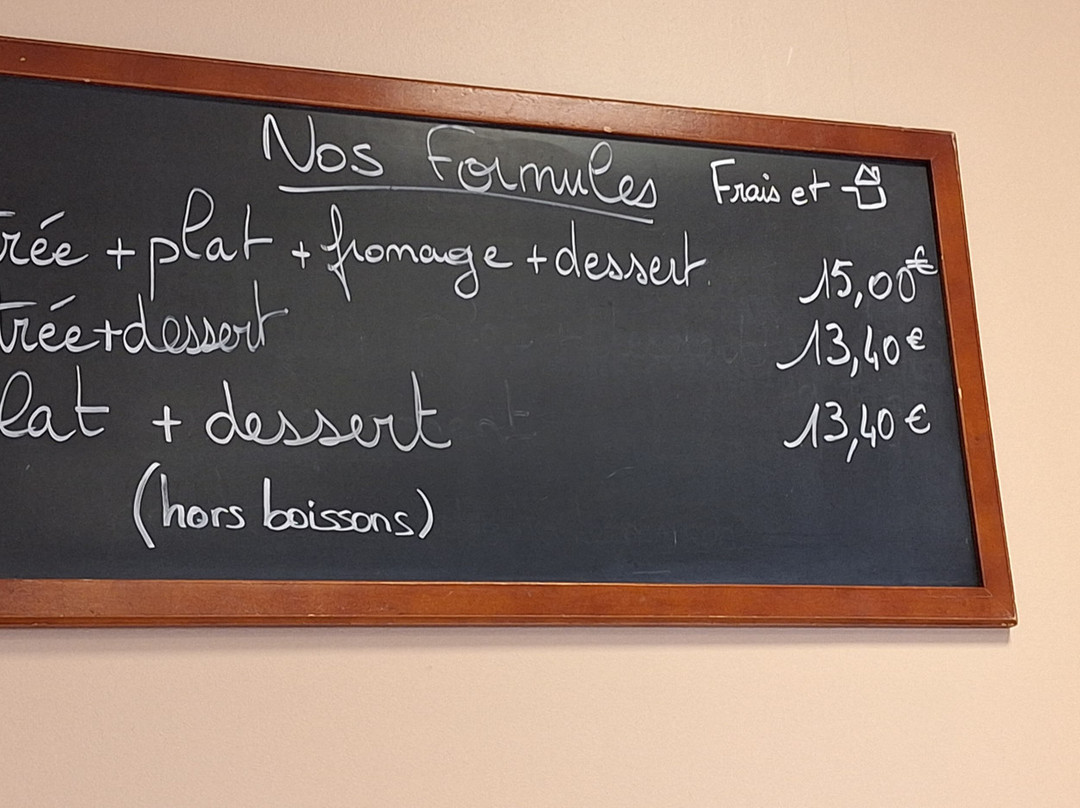 Nos Formules Frais et
trée + plat + fromage + dessert. 15,00€
trée+dessert 13,40€
lat + dessert 13,40€
(hors boissons)